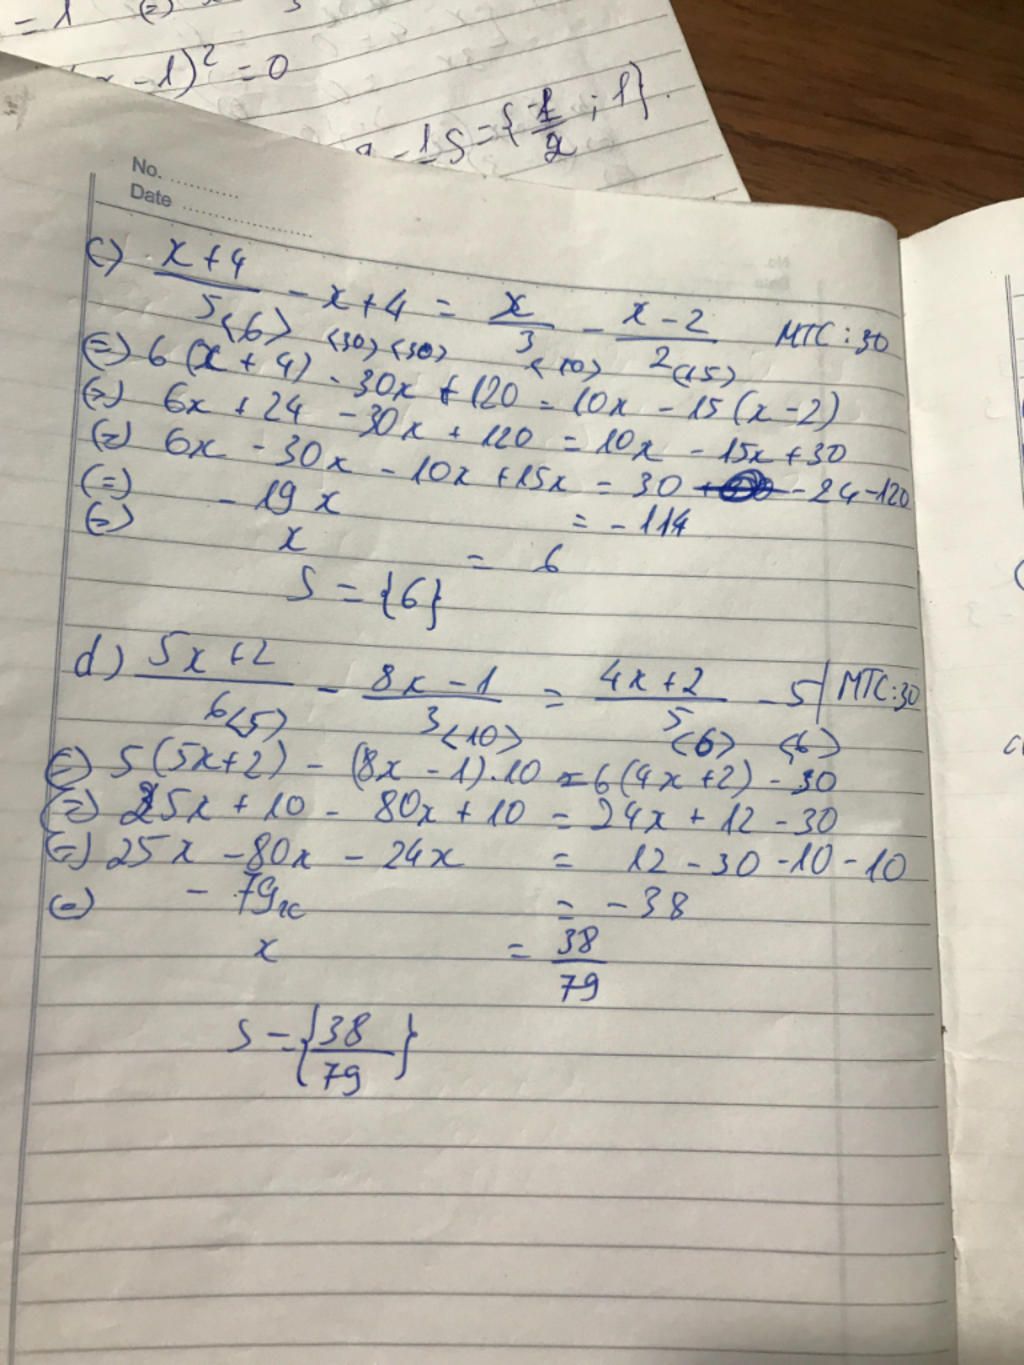 = 1 (=) x
x - 1)² = 0
- 1 S = {-1/2 ; 1}.
No. ............
Date ....................
c) (x+4)/5 - x + 4 = x/3 - (x-2)/2 MTC : 30
<6> <30> <30> <10> <15>
(=) 6(x + 4) - 30x + 120 = 10x - 15(x-2)
(=) 6x + 24 - 30x + 120 = 10x - 15x + 30
(=) 6x - 30x - 10x + 15x = 30 - 24 - 120
(=) - 19x = - 114
(=) x = 6
S = {6}
d) (5x+2)/6 - (8x-1)/3 = (4x+2)/5 - 5 | MTC : 30
<5> <10> <6> <6>
(=) 5(5x+2) - (8x - 1).10 = 6(4x+2) - 30
(=) 25x + 10 - 80x + 10 = 24x + 12 - 30
(=) 25x - 80x - 24x = 12 - 30 - 10 - 10
(=) - 79x = - 38
x = 38/79
S = {38/79}